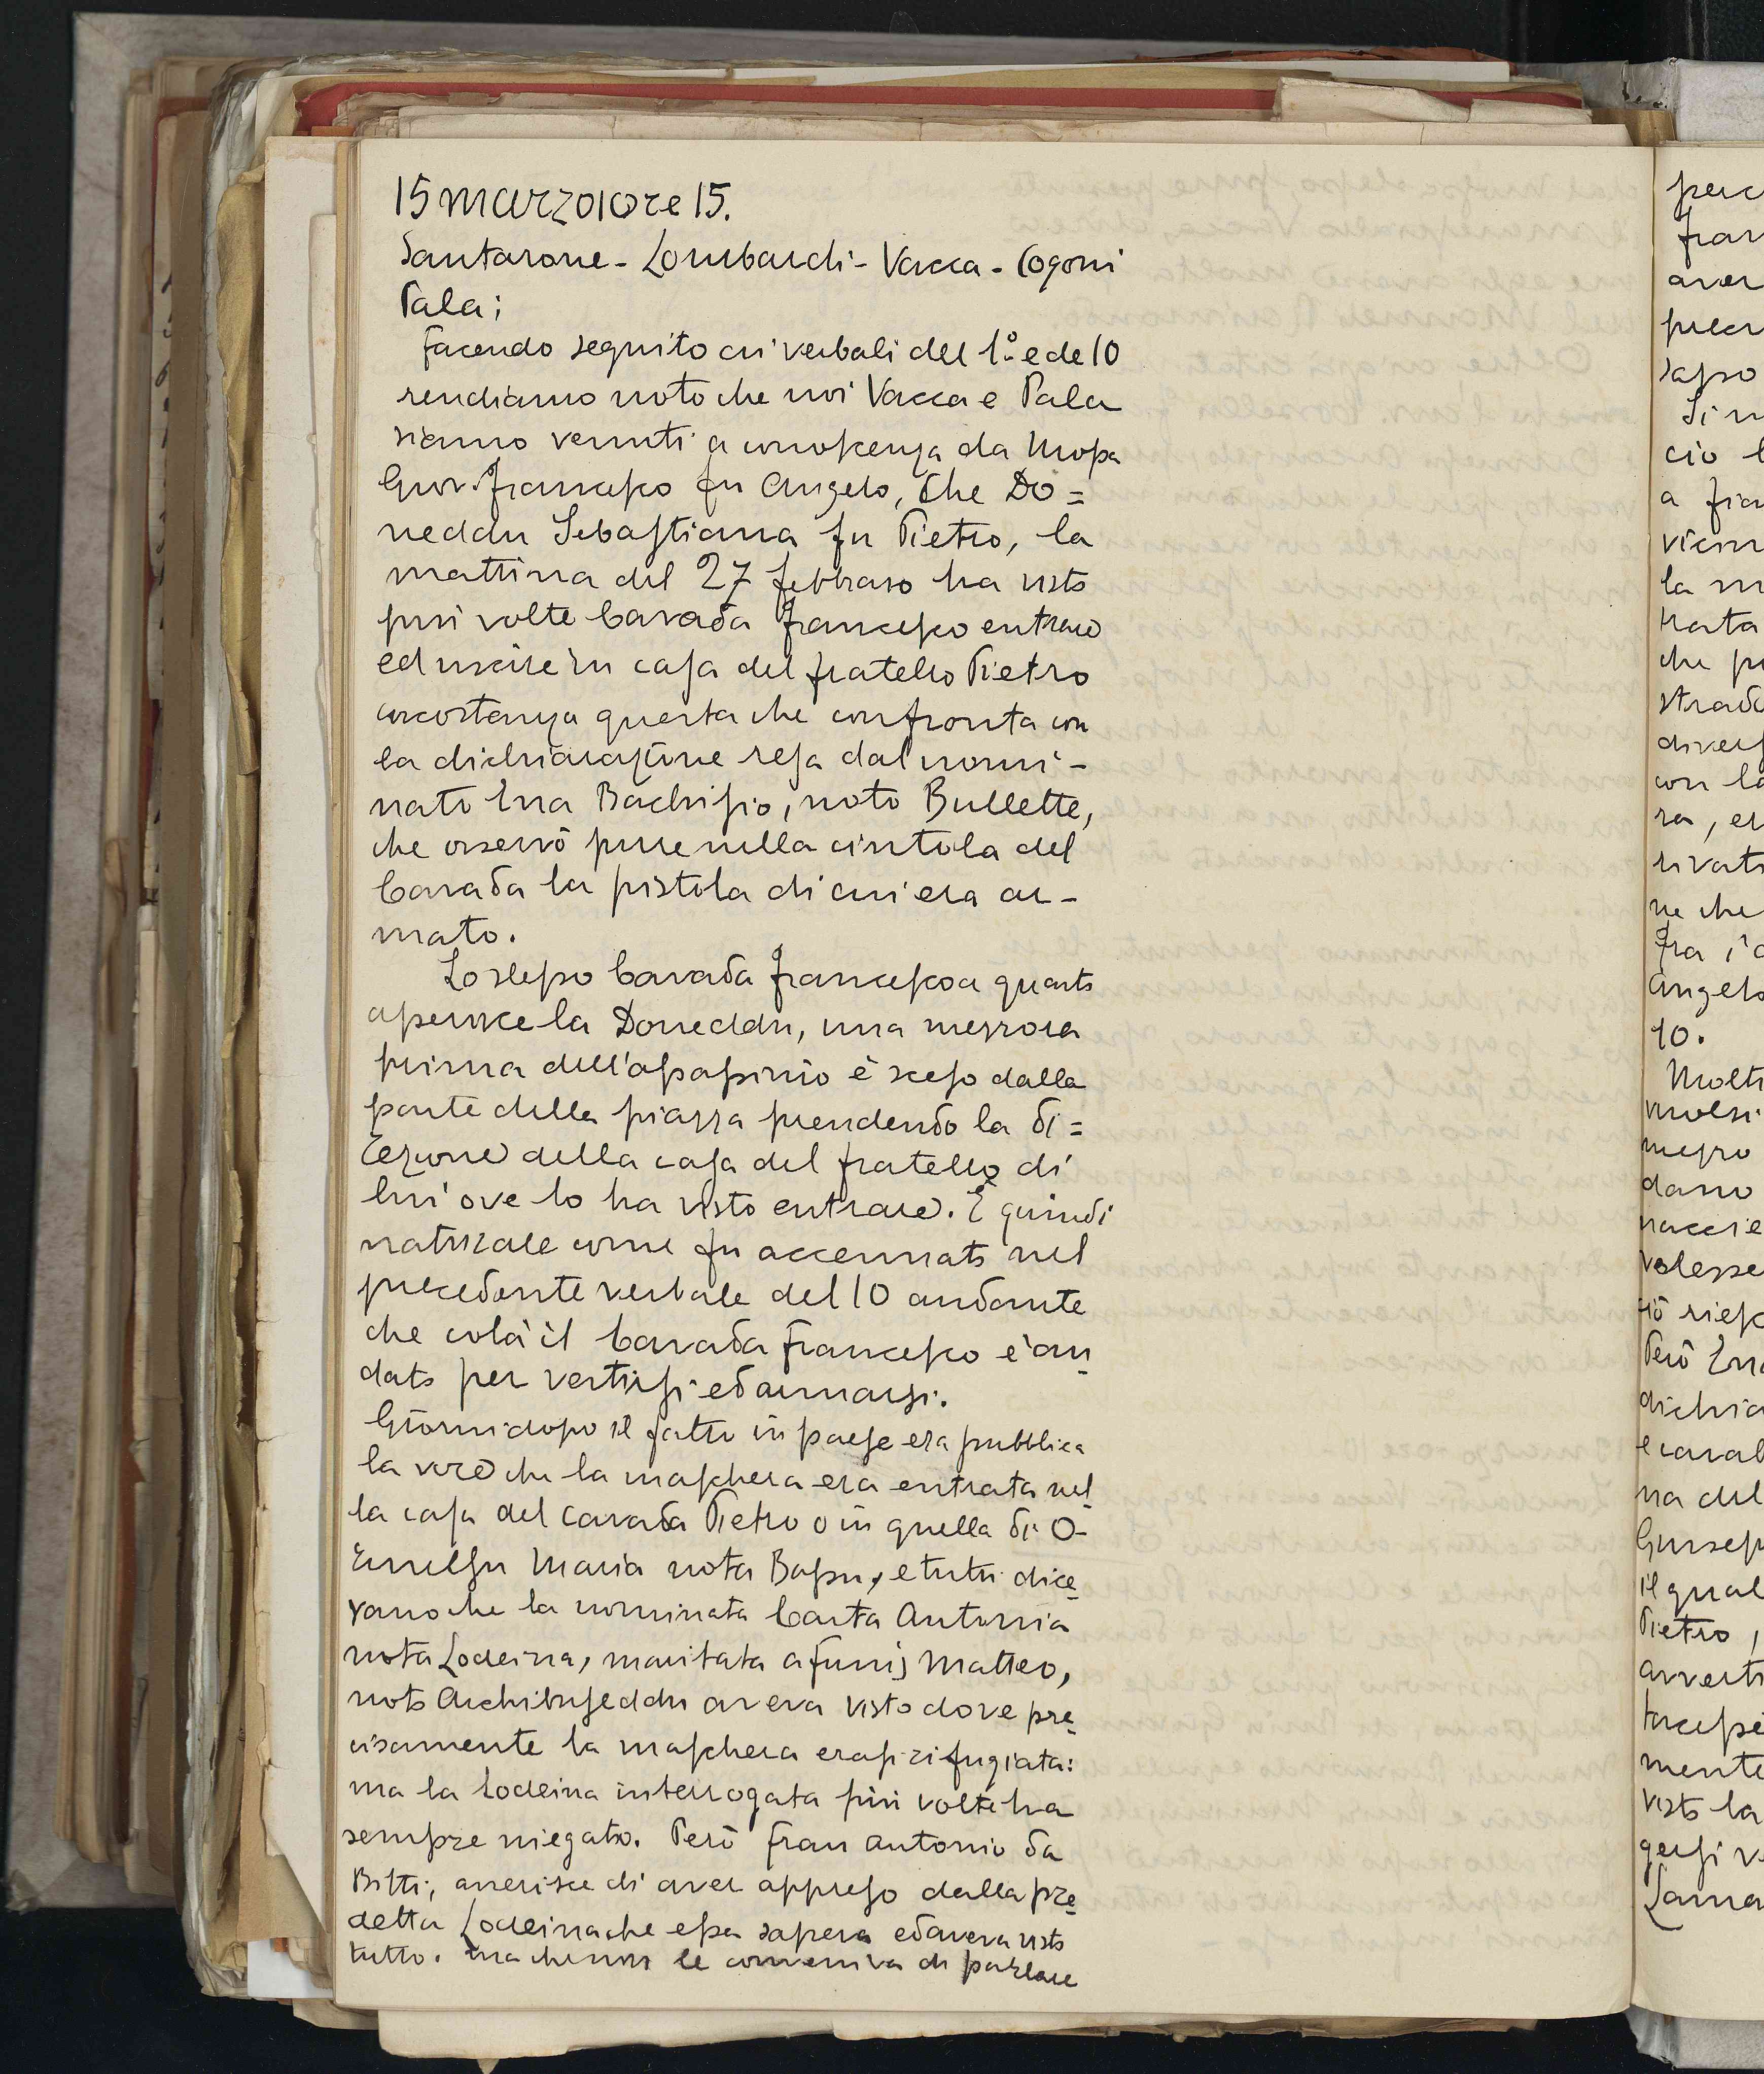 15 marzo 10 ore 15.
Santarone - Lombardi - Vacca - Cogoni
Pala;
Facendo seguito ai verbali del 1° e del 10
rendiamo noto che noi Vacca e Pala
siamo venuti a conoscenza da Mossa
Giov. Francesco fu Angelo, che Do=
neddu Sebastiana fu Pietro, la
mattina del 27 febbraio ha visto
più volte Cavada Francesco entrare
ed uscire in casa del fratello Pietro
circostanza questa che confronta con
la dichiarazione resa dal nomi-
nato Ena Bachisio, noto Bullette,
che osservò pure nella cintola del
Cavada la pistola di cui era ar-
mato.
Lo stesso Cavada Francesco a quanto
asserisce la Doneddu, una mezzora
prima dell'assassinio è sceso dalla
parte della piazza prendendo la di=
rezione della casa del fratello di
lui ove lo ha visto entrare. È quindi
naturale come fu accennato nel
precedente verbale del 10 andante
che colà il Cavada Francesco è an
dato per vestirsi ed armarsi.
Giorni dopo il fatto in paese era pubblica
la voce che la maschera era entrata nel
la casa del Cavada Pietro o in quella di O-
Maria nota Bassu, e tutti dice
vano che la nominata Carta Antonia
nota Lodeina, maritata a Funis Matteo,
noto Archibuseddu aveva visto dove pre
cisamente la maschera erasi rifugiata:
ma la Lodeina interrogata più volte ha
sempre niegato. Però Frau Antonio da
Bitti, asserisce di aver appreso dalla pre
detta Lodeina che essa sapeva ed aveva visto
tutto. ma che non le conveniva di parlare
perc
fran
aver
sapso
Si n
cio l
a fia
vicin
la m
trata
che pr
strada
divers
con la
ra, er
rivati
ne che
fra i
Angelo
10.
Molti
mezzo
dano
naccie
volesse
Però Ena
dichia
na del
Giusep
il qual
Pietro,
avverti
mente
visto la
gersi v